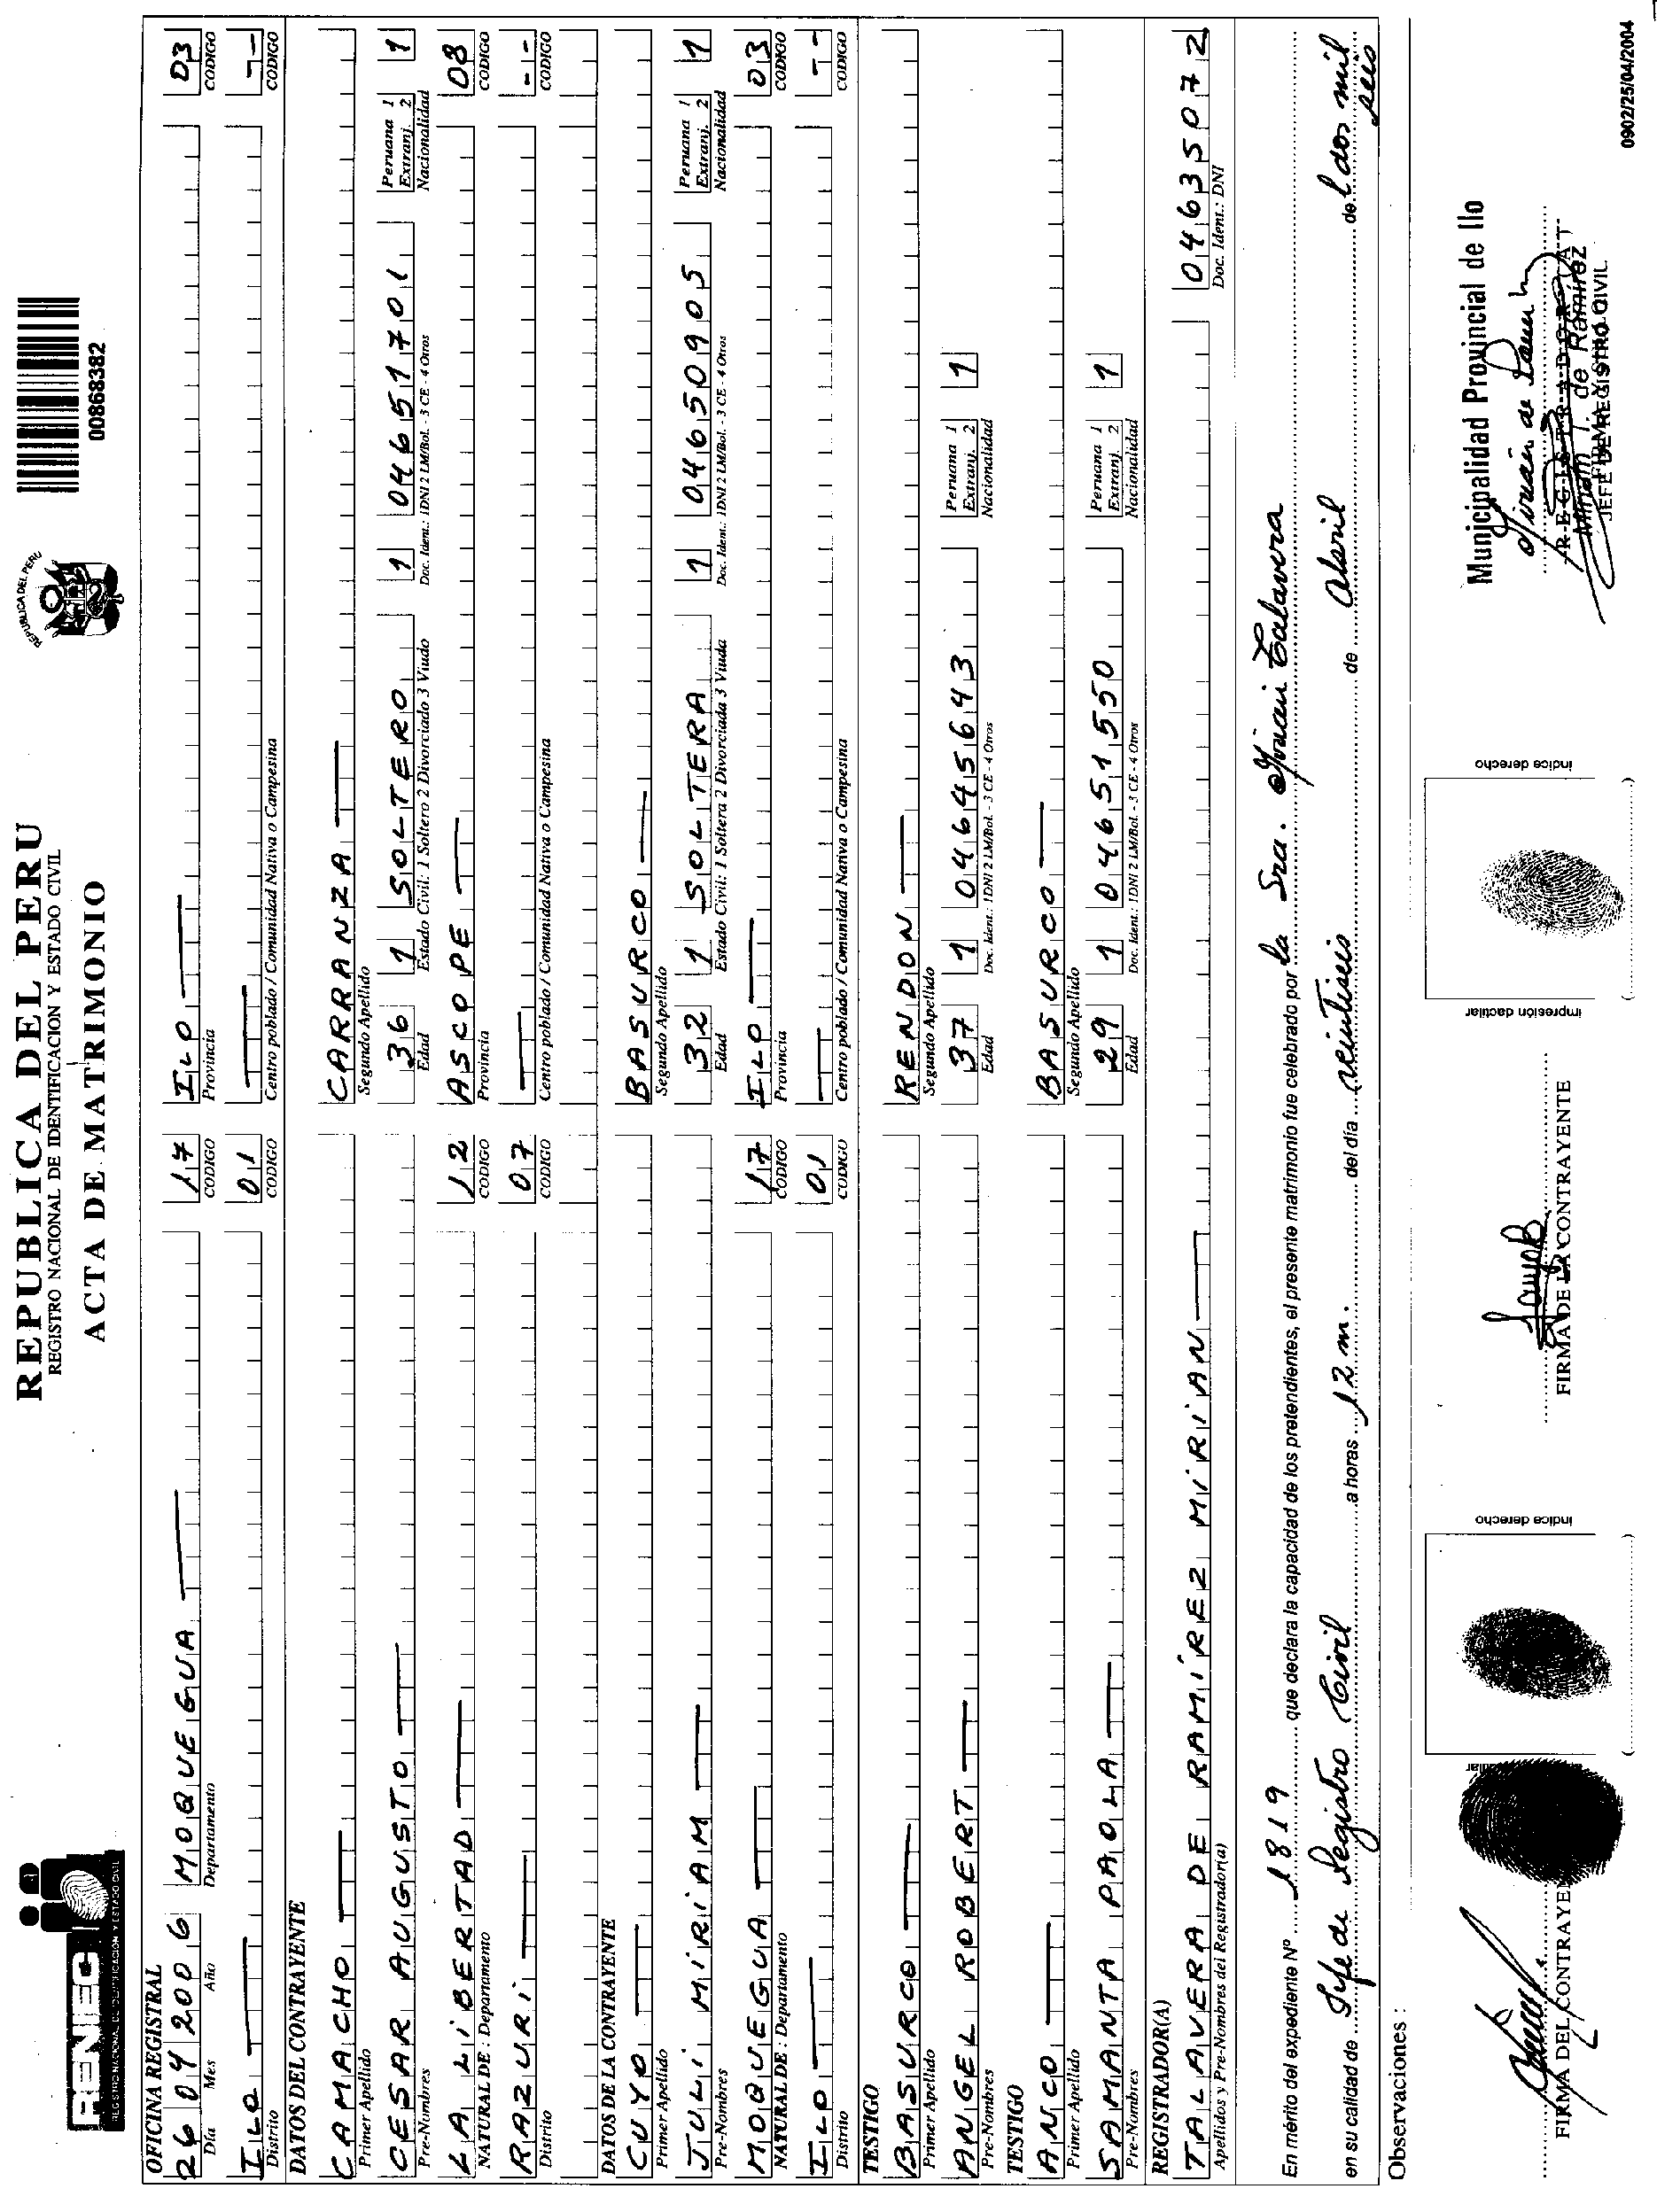 RENIEC
REGISTRO NACIONAL DE IDENTIFICACION Y ESTADO CIVIL
REPUBLICA DEL PERU
REGISTRO NACIONAL DE IDENTIFICACION Y ESTADO CIVIL
ACTA DE MATRIMONIO
REPUBLICA DEL PERU
00868382
OFICINA REGISTRAL
26 04 2006 MOQUEGUA 17 ILO 03
Día Mes Año Departamento CODIGO Provincia CODIGO
ILO 01 --
Distrito CODIGO Centro poblado / Comunidad Nativa o Campesina CODIGO
DATOS DEL CONTRAYENTE
CAMACHO CARRANZA
Primer Apellido Segundo Apellido
CESAR AUGUSTO 36 1 SOLTERO 1 04651701 Peruana 1 Extranj. 2 1
Pre-Nombres Edad Estado Civil: 1 Soltero 2 Divorciado 3 Viudo Doc. Ident.: 1DNI 2 LM/Bol. - 3 CE - 4 Otros Nacionalidad
LA LIBERTAD 12 ASCOPE 08
NATURAL DE : Departamento CODIGO Provincia CODIGO
RAZURI 07 --
Distrito CODIGO Centro poblado / Comunidad Nativa o Campesina CODIGO
DATOS DE LA CONTRAYENTE
CUYO BASURCO
Primer Apellido Segundo Apellido
JULI MIRIAM 32 1 SOLTERA 1 04650905 Peruana 1 Extranj. 2 1
Pre-Nombres Edad Estado Civil: 1 Soltera 2 Divorciada 3 Viuda Doc. Ident.: 1DNI 2 LM/Bol. - 3 CE - 4 Otros Nacionalidad
MOQUEGUA 17 ILO 03
NATURAL DE : Departamento CODIGO Provincia CODIGO
ILO 01 --
Distrito CODIGO Centro poblado / Comunidad Nativa o Campesina CODIGO
TESTIGO
BASURCO RENDON
Primer Apellido Segundo Apellido
ANGEL ROBERT 37 1 04645643 Peruana 1 Extranj. 2 1
Pre-Nombres Edad Doc. Ident.: 1DNI 2 LM/Bol. - 3 CE - 4 Otros Nacionalidad
TESTIGO
ANCO BASURCO
Primer Apellido Segundo Apellido
SAMANTA PAOLA 29 1 04651550 Peruana 1 Extranj. 2 1
Pre-Nombres Edad Doc. Ident.: 1DNI 2 LM/Bol. - 3 CE - 4 Otros Nacionalidad
REGISTRADOR(A)
TALAVERA DE RAMÍREZ MIRIAN 04635072
Apellidos y Pre-Nombres del Registrador(a) Doc. Ident.: DNI
En mérito del expediente Nº 1819 que declara la capacidad de los pretendientes, el presente matrimonio fue celebrado por la Sra. Mirian Talavera
en su calidad de Jefe de Registro Civil a horas 12 m. del día veintiseis de Abril de l dos mil seis
Observaciones :
Municipalidad Provincial de Ilo
índice derecho
índice derecho
impresión dactilar
FIRMA DEL CONTRAYENTE
FIRMA DE LA CONTRAYENTE
REGISTRADOR
Mirian T. de Ramirez
JEFE DE REGISTRO CIVIL
0902/25/04/2004